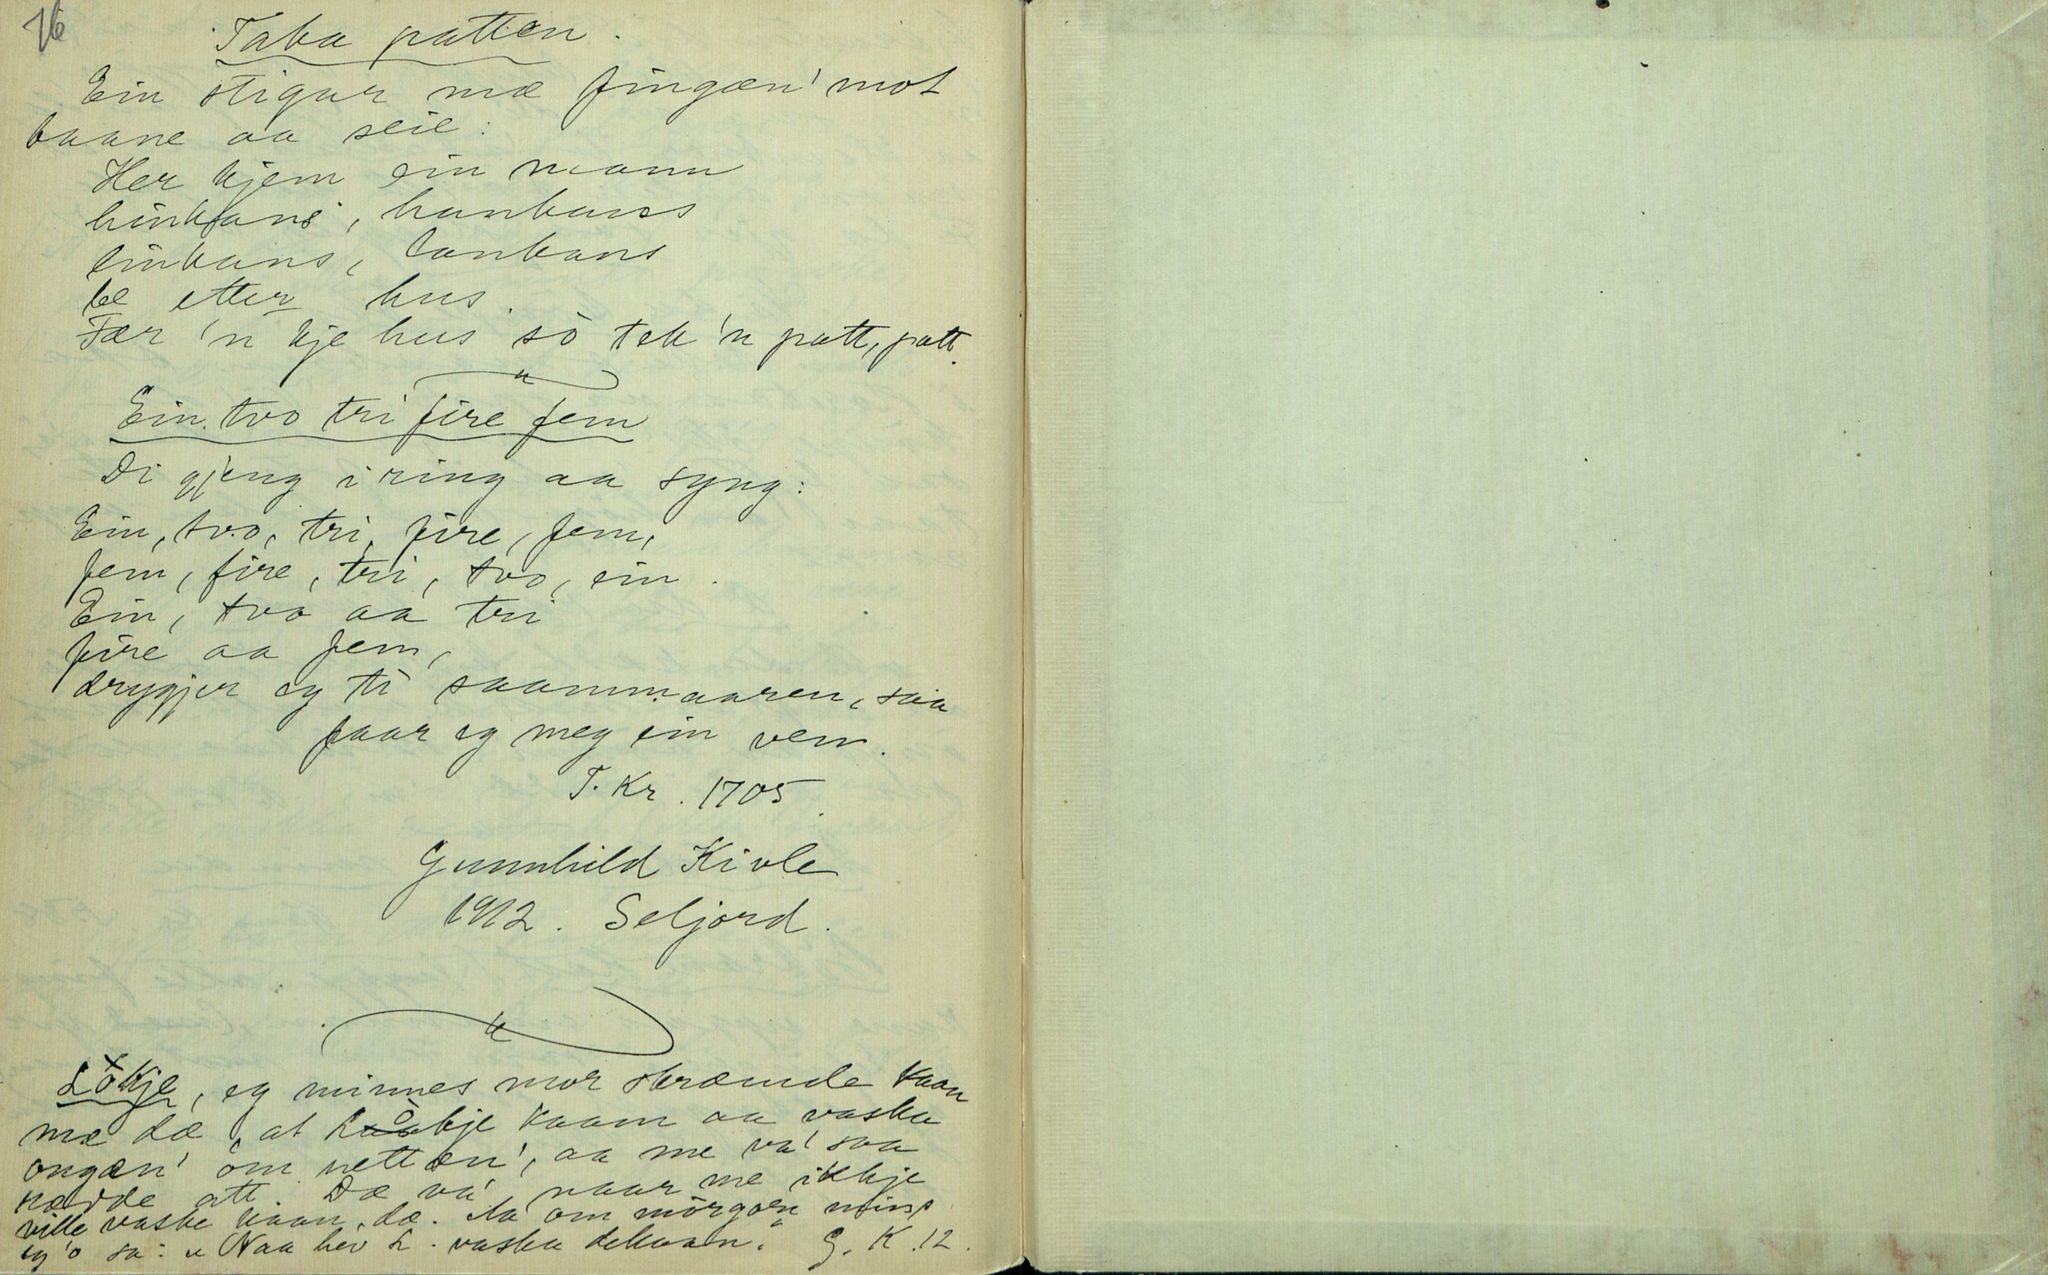 76
Taka patten.
Ein stigur mæ fingæn' mot
baane aa seie:
Her kjem ein mann
hinkans, hankans
linkans, lankans
be etter hus.
Fær 'n kje hus sò tek 'n patt, patt.
Ein tvo tri fire fem
Di gjeng i ring aa syng:
Ein, tvo, tri, fire, fem,
fem, fire, tri, tvo, ein.
Ein, tvo aa tri
fire aa fem,
drygjer eg ti saammaaren, saa
faar eg meg ein ven.
T. Kr. 1705.
Gunnhild Kivle
1912. Seljord.
Lòkje, eg minnes mor skræmde kaan
mæ dæ, at Lòkje kaam aa vaska
ongæn' òm nettæn', aa me va' saa
rædde att. Dæ va' naar me ikkje
ville vaske kaan, dæ. Aa om mòrgon mins
eg 'o sa: "Naa hev L. vaska dekaan." G. K. 12.